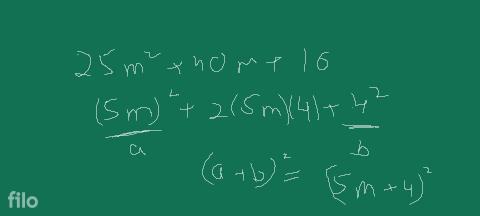 25m² + 40m + 16
(5m)² + 2(5m)(4) + 4²
a b
(a+b)² = (5m+4)²
filo